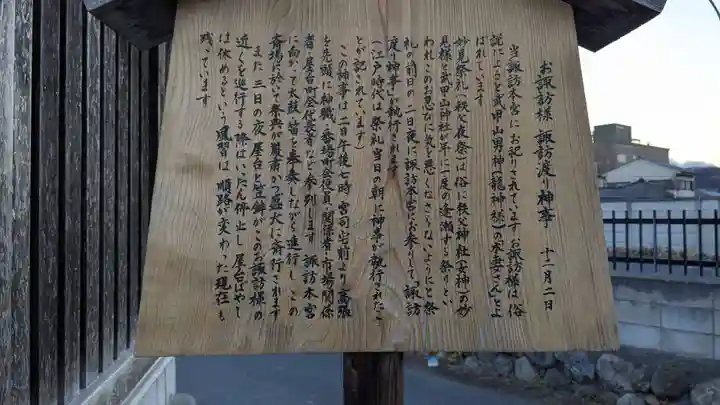 お諏訪様 諏訪渡り神事 十二月二日
当諏訪本宮にお祀りされています お諏訪様は 俗
説によると武甲山男神(龍神様)の本妻さんとよ
ばれています
妙見祭礼(秩父夜祭)は俗に秩父神社(女神)の妙
見様と武甲山神社が年に一度の逢瀬する祭りとい
われ このお忍びに気を悪くなさらないようにと 祭
礼の前日の二日夜に諏訪本宮にお参りして「諏訪
渡り神事」が執行されます
(江戸時代は祭礼当日の朝に神事が執行されたこ
とが記されてます)
この神事は二日午後七時 宮司宅前より 高張
を先頭に神職 番場町会役員 関係者 市場関係
者 屋台町会代表者など参列します 諏訪本宮
に向かって太鼓 笛を奉奏しながら進行し この
斎場に於いて祭典が厳粛かつ盛大に斎行されます
また 三日の夜 屋台と笠鉾がこのお諏訪様の
近くを巡行する際はいったん停止し 屋台ばやし
は休めるという風習は 順路が変わった現在も
残っています